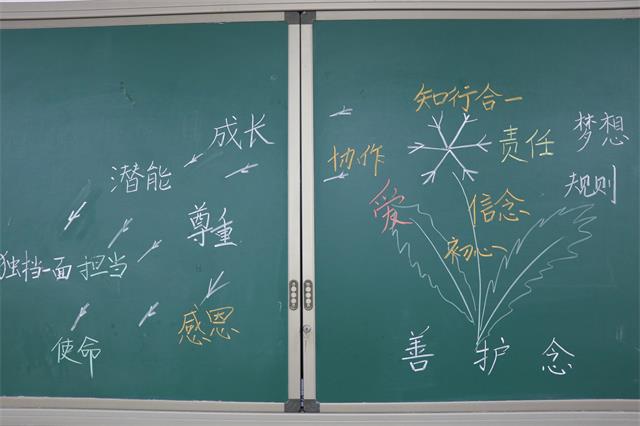 成长
潜能
尊重
独挡一面 担当
感恩
使命
知行合一
梦想
责任
协作
规则
爱
信念
初心
善 护 念